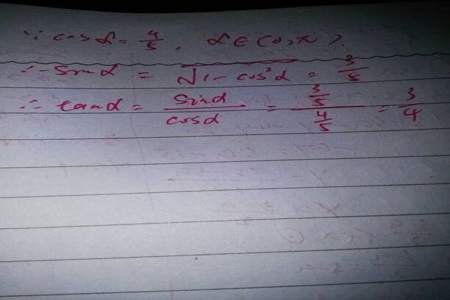 ∵ cosα = 4/5, α∈(0,π).
∴ sinα = √1-cos²α = 3/5
∴ tanα = sinα/cosα = 3/5/4/5 = 3/4